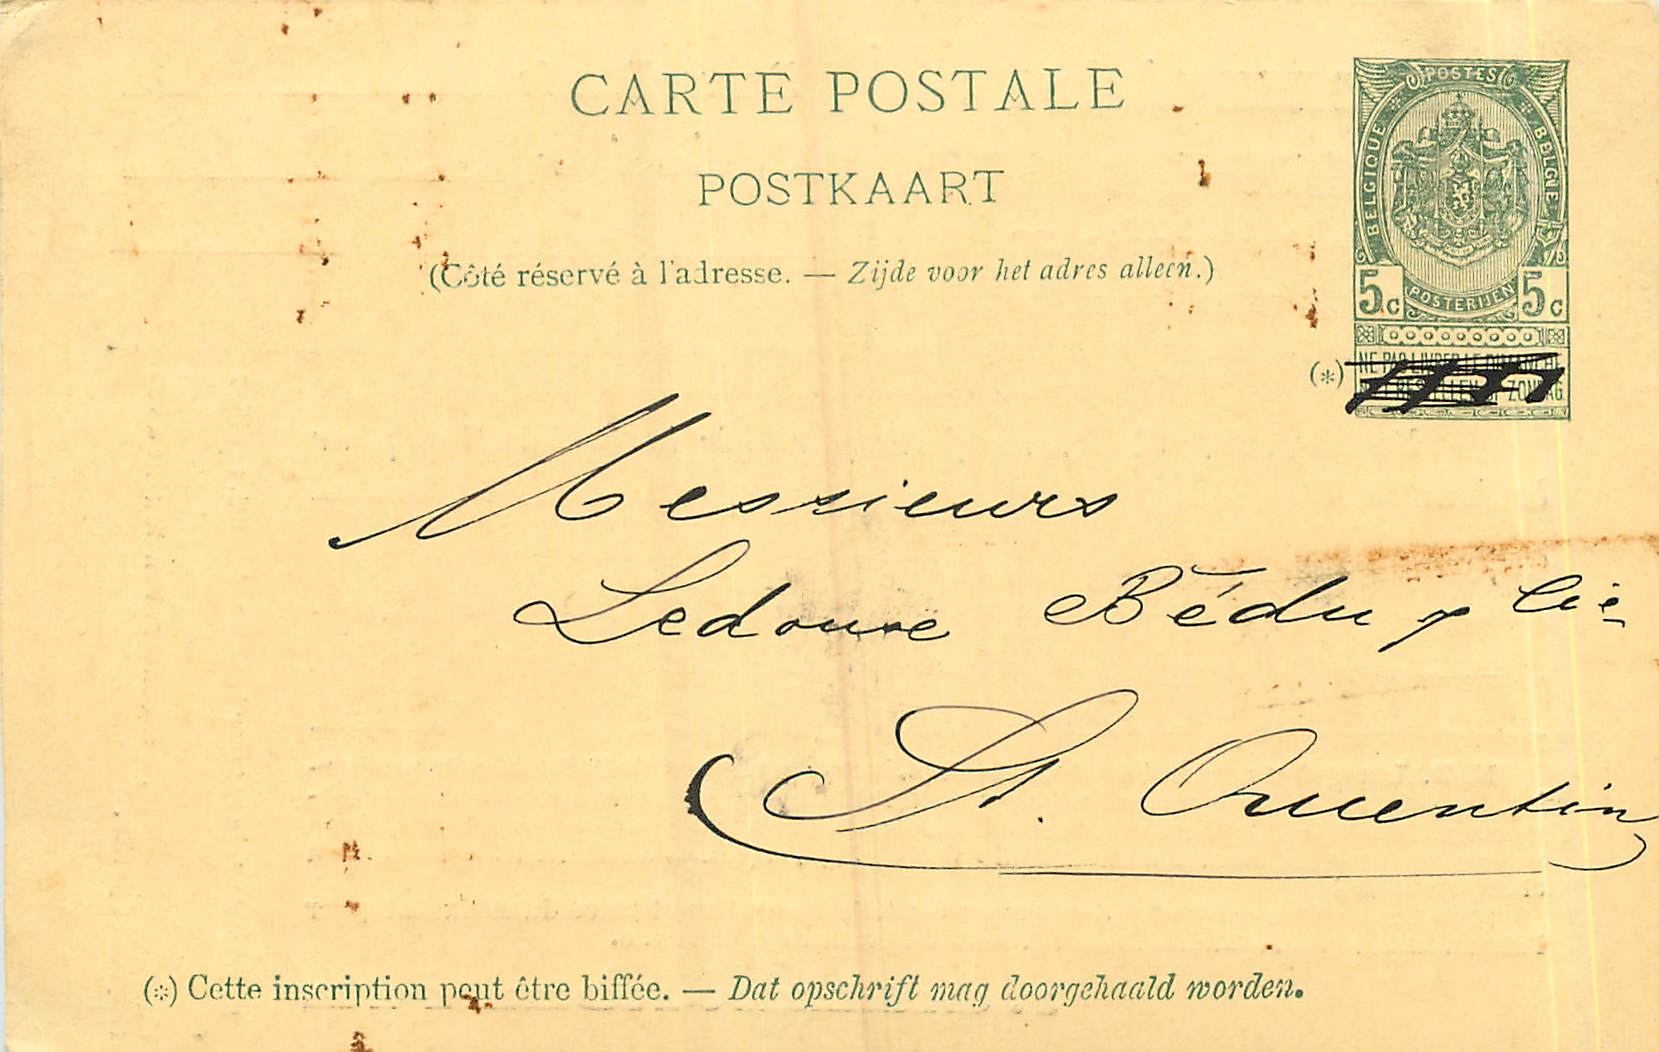 CARTE POSTALE
POSTKAART
(Côté réservé à l'adresse. — Zijde voor het adres alleen.)
POSTES
BELGIQUE BELGIË
POSTERIJEN
5c 5c
(*) NE PAS LIVRER LE DIMANCHE
NIET BESTELLEN OP ZONDAG
Messieurs
Ledoux Bédu & Cie
St. Quentin
(*) Cette inscription peut être biffée. — Dat opschrift mag doorgehaald worden.